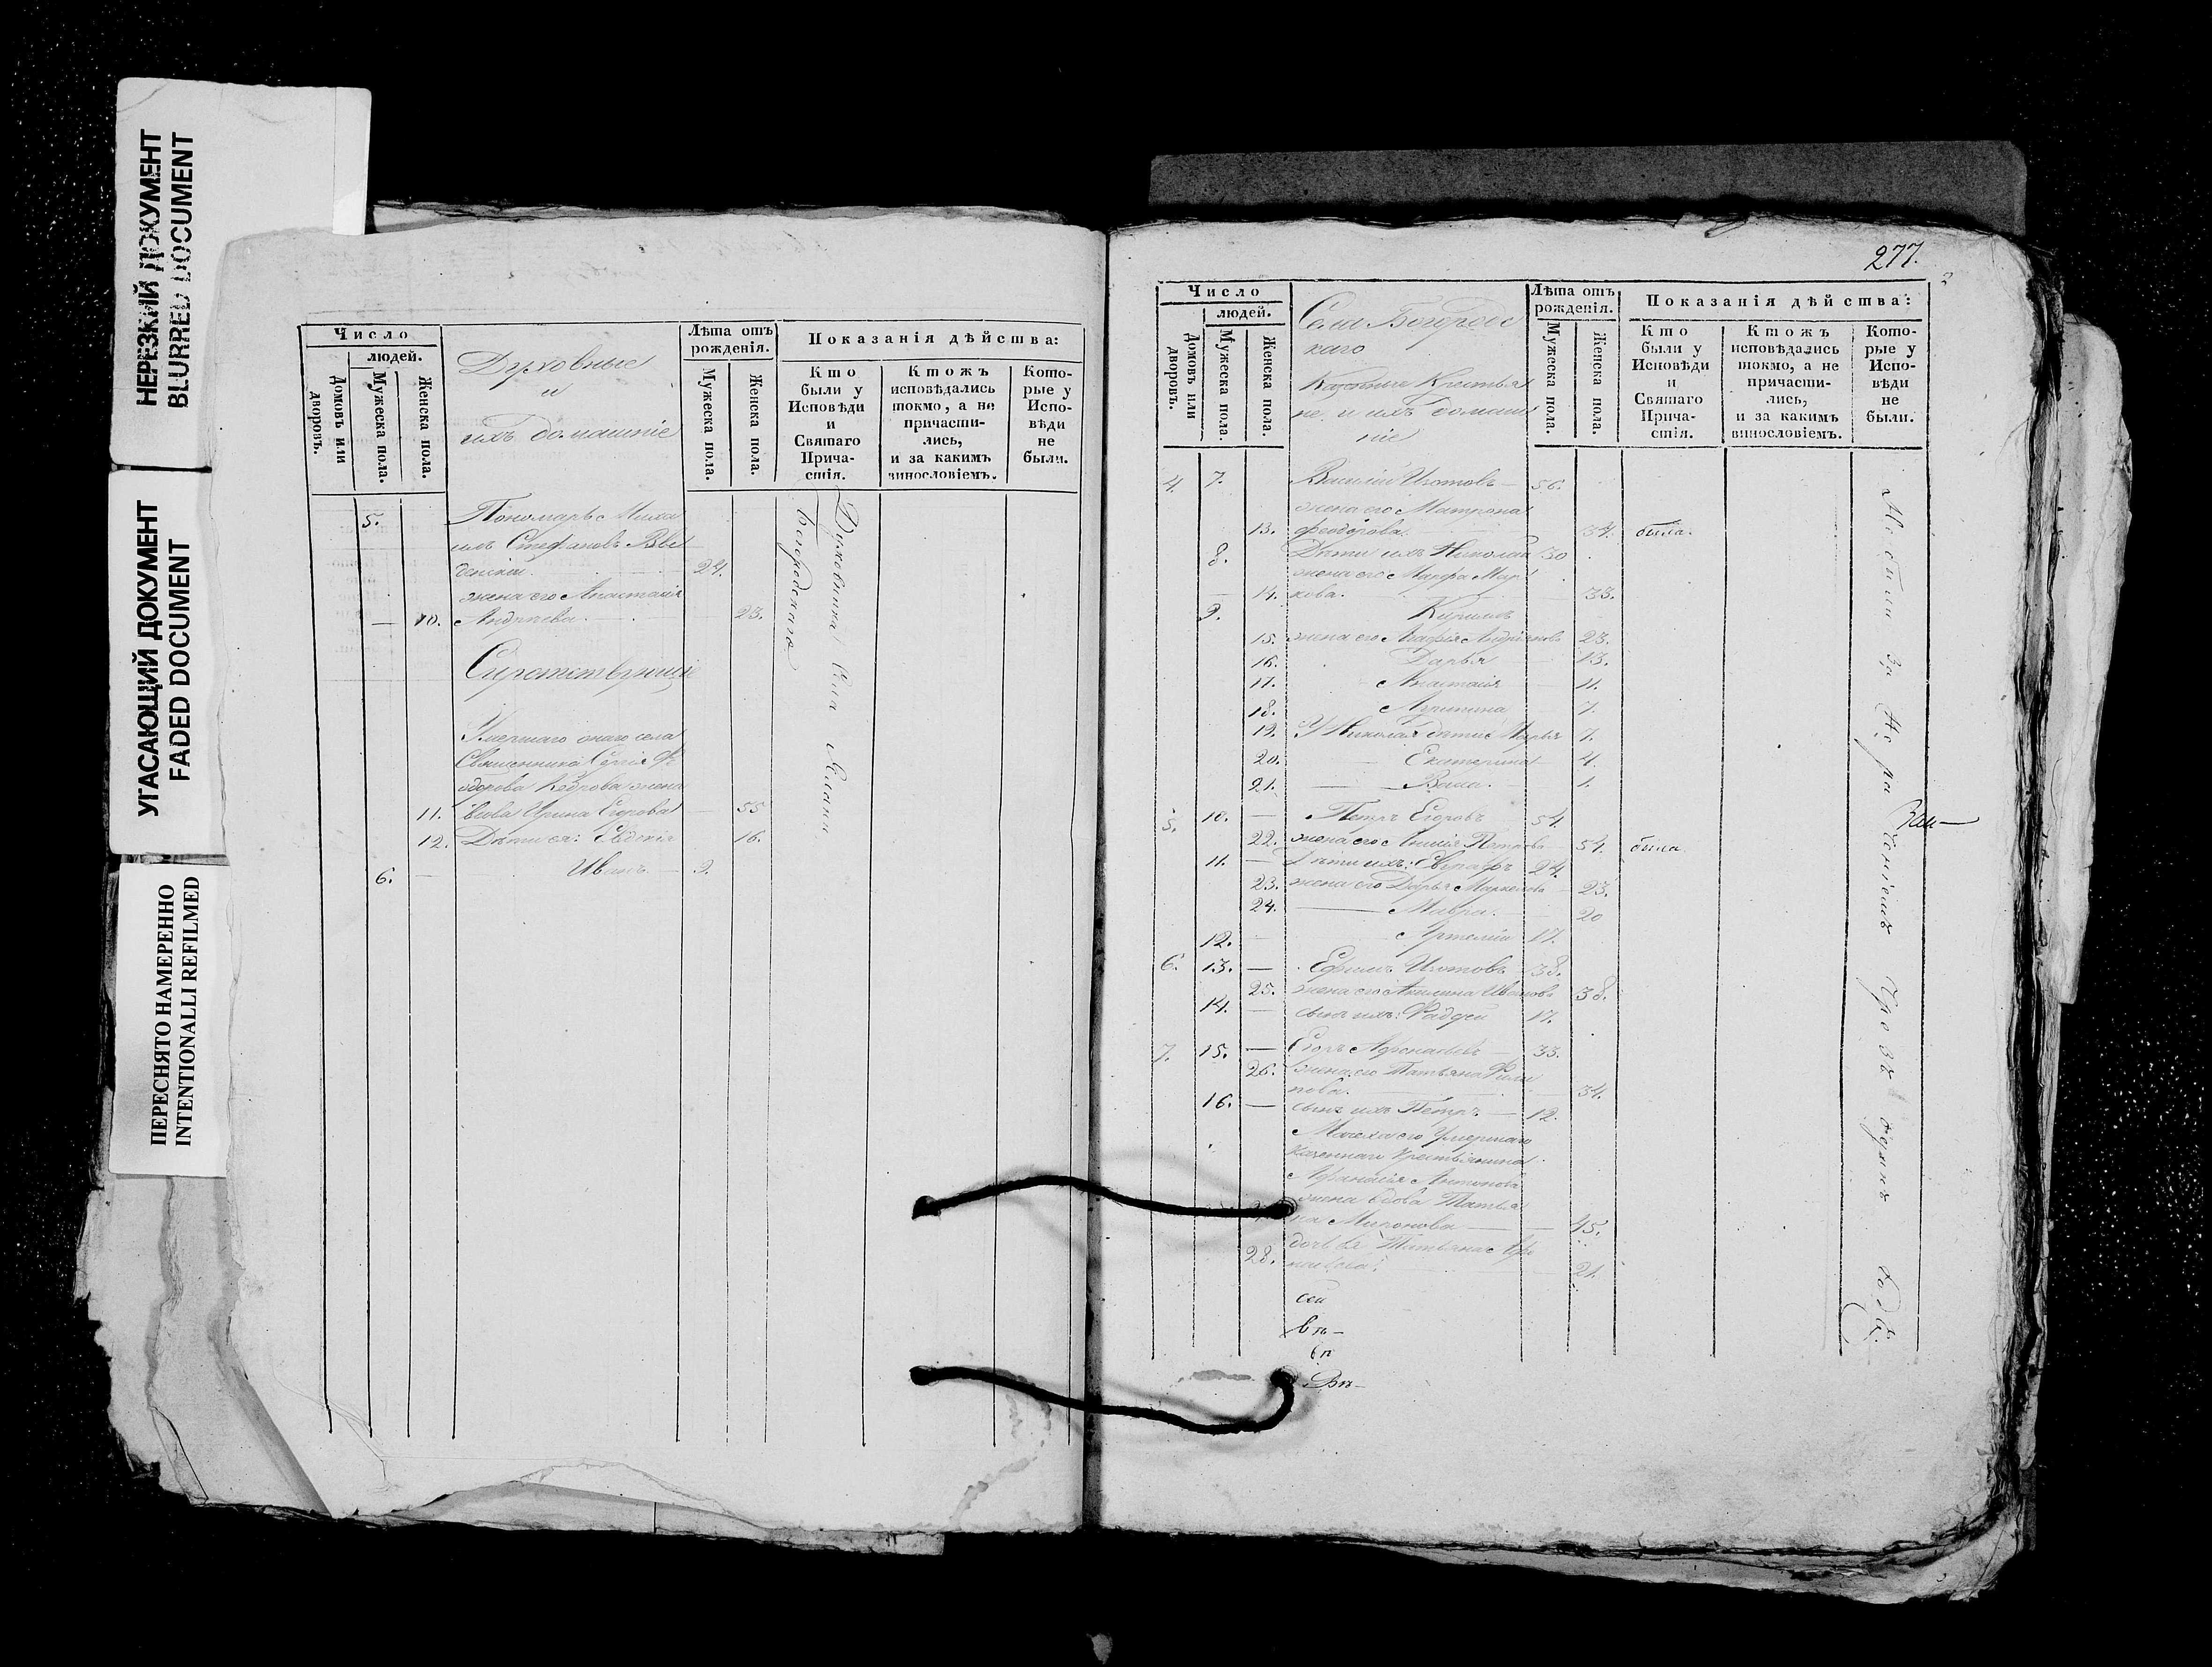 НЕРЕЗКИЙ ДОКУМЕНТ
BLURRED DOCUMENT
УГАСАЮЩИЙ ДОКУМЕНТ
FADED DOCUMENT
ПЕРЕСНЯТО НАМЕРЕННО
INTENTIONALLI REFILMED
Число
людей.
Домовъ или дворовъ.
Мужеска пола.
Женска пола.
Духовные
и
ихъ домашніе
Лѣта отъ
рожденія.
Мужеска пола.
Женска пола.
Показанія дѣйства:
Кто
были у
Исповѣди
и
Святаго
Прича-
стія.
Ктожъ
исповѣдались
токмо, а не
причасти-
лись,
и за какимъ
винословіемъ.
Кото-
рые у
Испо-
вѣди
не
были.
5. Пономарь Миха
илъ Стефановъ Вве
денскій. 24.
жена его Анастасія
10. Андреева. 23.
Сиротствующіе
Умершаго онаго села
Священника Сергія Фе
одорова Кедрова жена
11. вдова Ирина Егорова 55
12. Дѣти ея: Евдокія 16.
6. Иванъ 9.
Богородскаго
277.
Число
людей.
Домовъ или дворовъ.
Мужеска пола.
Женска пола.
Села Богородс
каго
Казенные Крестья
не и ихъ домаш
ніе
Лѣта отъ
рожденія.
Мужеска пола.
Женска пола.
Показанія дѣйства:
Кто
были у
Исповѣди
и
Святаго
Прича-
стія.
Ктожъ
исповѣдались
токмо, а не
причасти-
лись,
и за какимъ
винословіемъ.
Кото-
рые у
Испо-
вѣди
не
были.
4. 7. Василій Изотовъ 56.
жена его Матрона
13. Феодорова. 54. была.
8. Дѣти ихъ Николай 30
жена его Марфа Мар
14. кова. 33.
9. Кирилъ
15. жена его Агафія 23.
16. Дарья 13.
17. Анастасія 11.
18. 7.
19. У Николая дѣти: Марья 7.
20. Екатерина 4.
21. 1.
5. 10. Петръ Егоровъ 54.
22. жена его Петрова 54. была.
11. Дѣти ихъ: Евграфъ 24.
23. жена его Дарья 23.
24. Мавра. 20
12. 17.
6. 13. Ефимъ Изотовъ 38.
25. жена его Акилина Иванова 38.
14. сынъ ихъ: Фаддей 17.
7. 15. Егоръ Афонасьевъ 33.
26. жена его Татьяна Фили
пова. 34.
16. сынъ ихъ Петръ 12.
Мачеха его умершаго
казеннаго крестьянина
Афанасія Антонова
жена вдова Татья
на Миронова 45.
28. дочь ея Татьяна 21.
Не были За Не раченіемъ Чрозъ одинъ годъ.